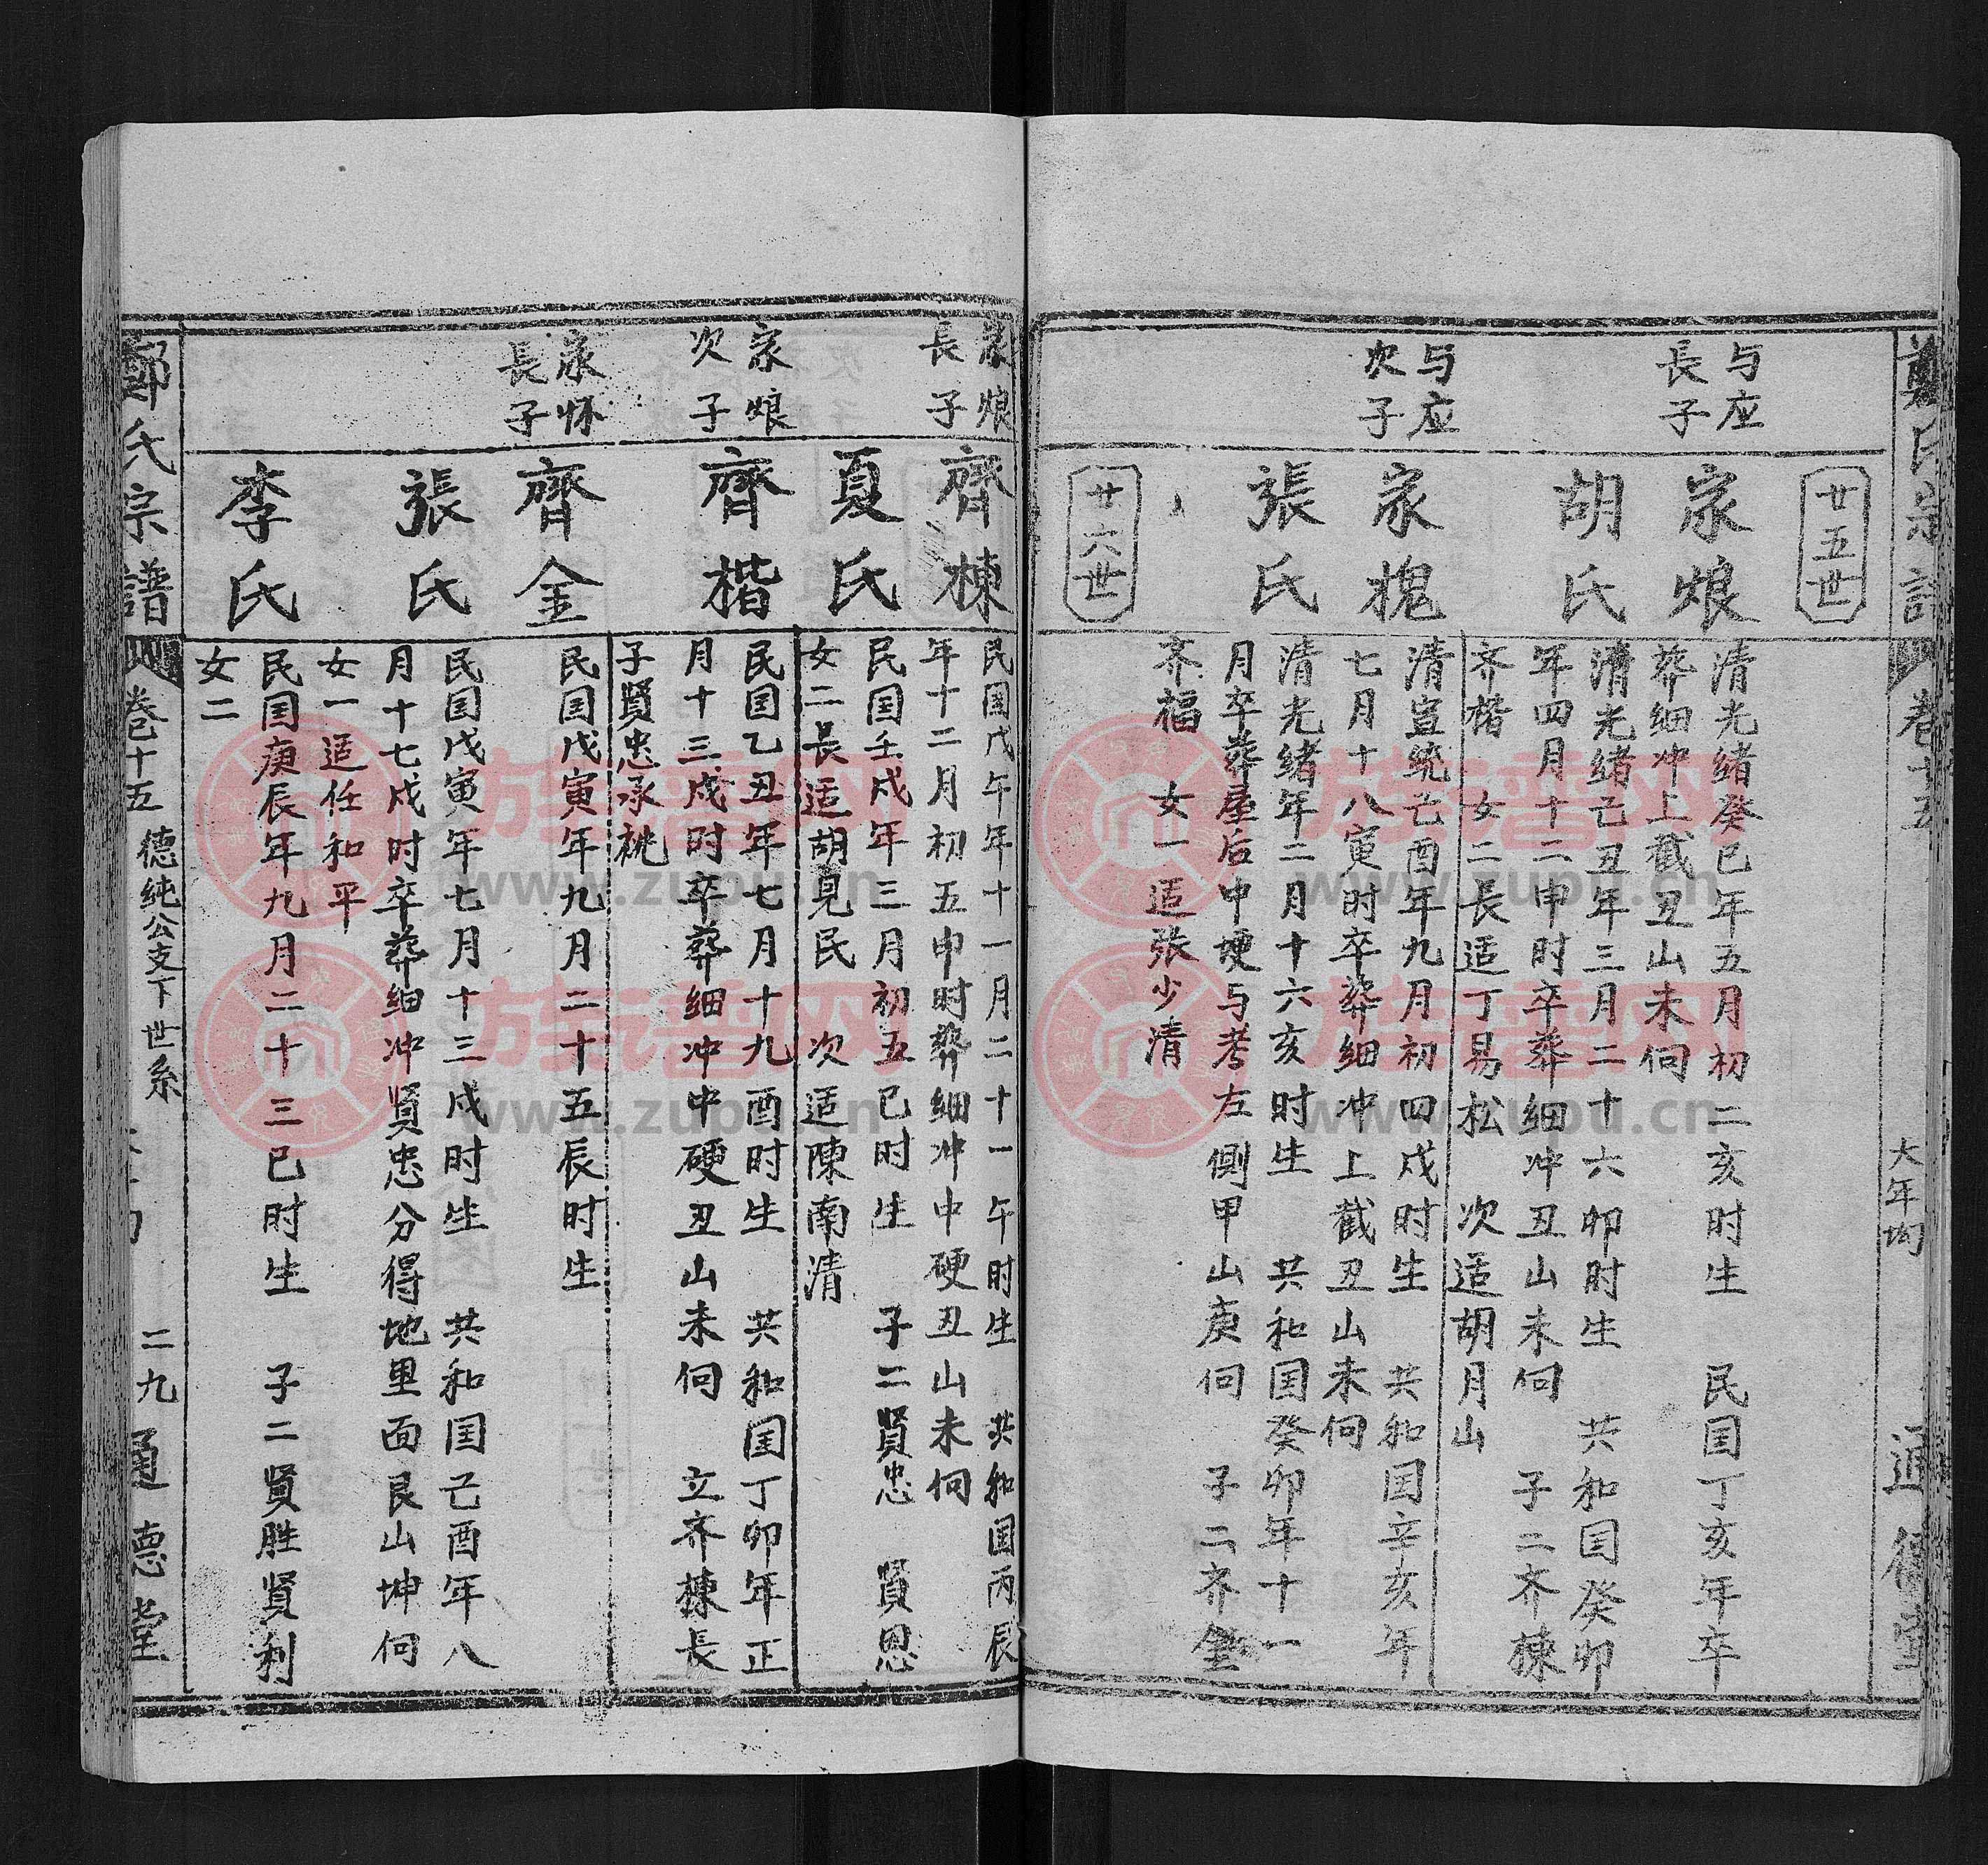 鄭氏宗譜
卷十五
大年坳
通德堂
廿五世
与应
長子
家烺
清光绪癸巳年五月初二亥时生 民国丁亥年卒
葬细冲上截丑山未向
胡氏
清光绪己丑年三月二十六卯时生 共和国癸卯
年四月十二申时卒葬细冲丑山未向 子二齐棟
齐楷 女二長适丁易松 次适胡月山
与应
次子
家槐
清宣统己酉年九月初四戌时生 共和国辛亥年
七月十八寅时卒葬细冲上截丑山未向
張氏
清光绪年二月十六亥时生 共和国癸卯年十一
月卒葬屋后中埂与考左側甲山庚向 子二齐金
齐福 女一适张少清
廿六世
家烺
長子
齊棟
民国戊午年十一月二十一午时生 共和国丙辰
年十二月初五申时葬细冲中硬丑山未向
夏氏
民国壬戌年三月初五巳时生 子二賢忠 賢恩
女二長适胡見民 次适陳南清
家烺
次子
齊楷
民国乙丑年七月十九酉时生 共和国丁卯年正
月十三戌时卒葬细冲中硬丑山未向 立齐棟長
子賢忠承祧
家怀
長子
齊金
民国戊寅年九月二十五辰时生
張氏
民国戊寅年七月十三戌时生 共和国己酉年八
月十七戌时卒葬细冲賢忠分得地里面艮山坤向
女一适任和平
李氏
民国庚辰年九月二十三巳时生 子二賢胜賢利
女二
鄭氏宗譜
卷十五
德純公支下世系
二九
通德堂
族谱网
www.zupu.cn
族谱网
www.zupu.cn
族谱网
www.zupu.cn
族谱网
www.zupu.cn